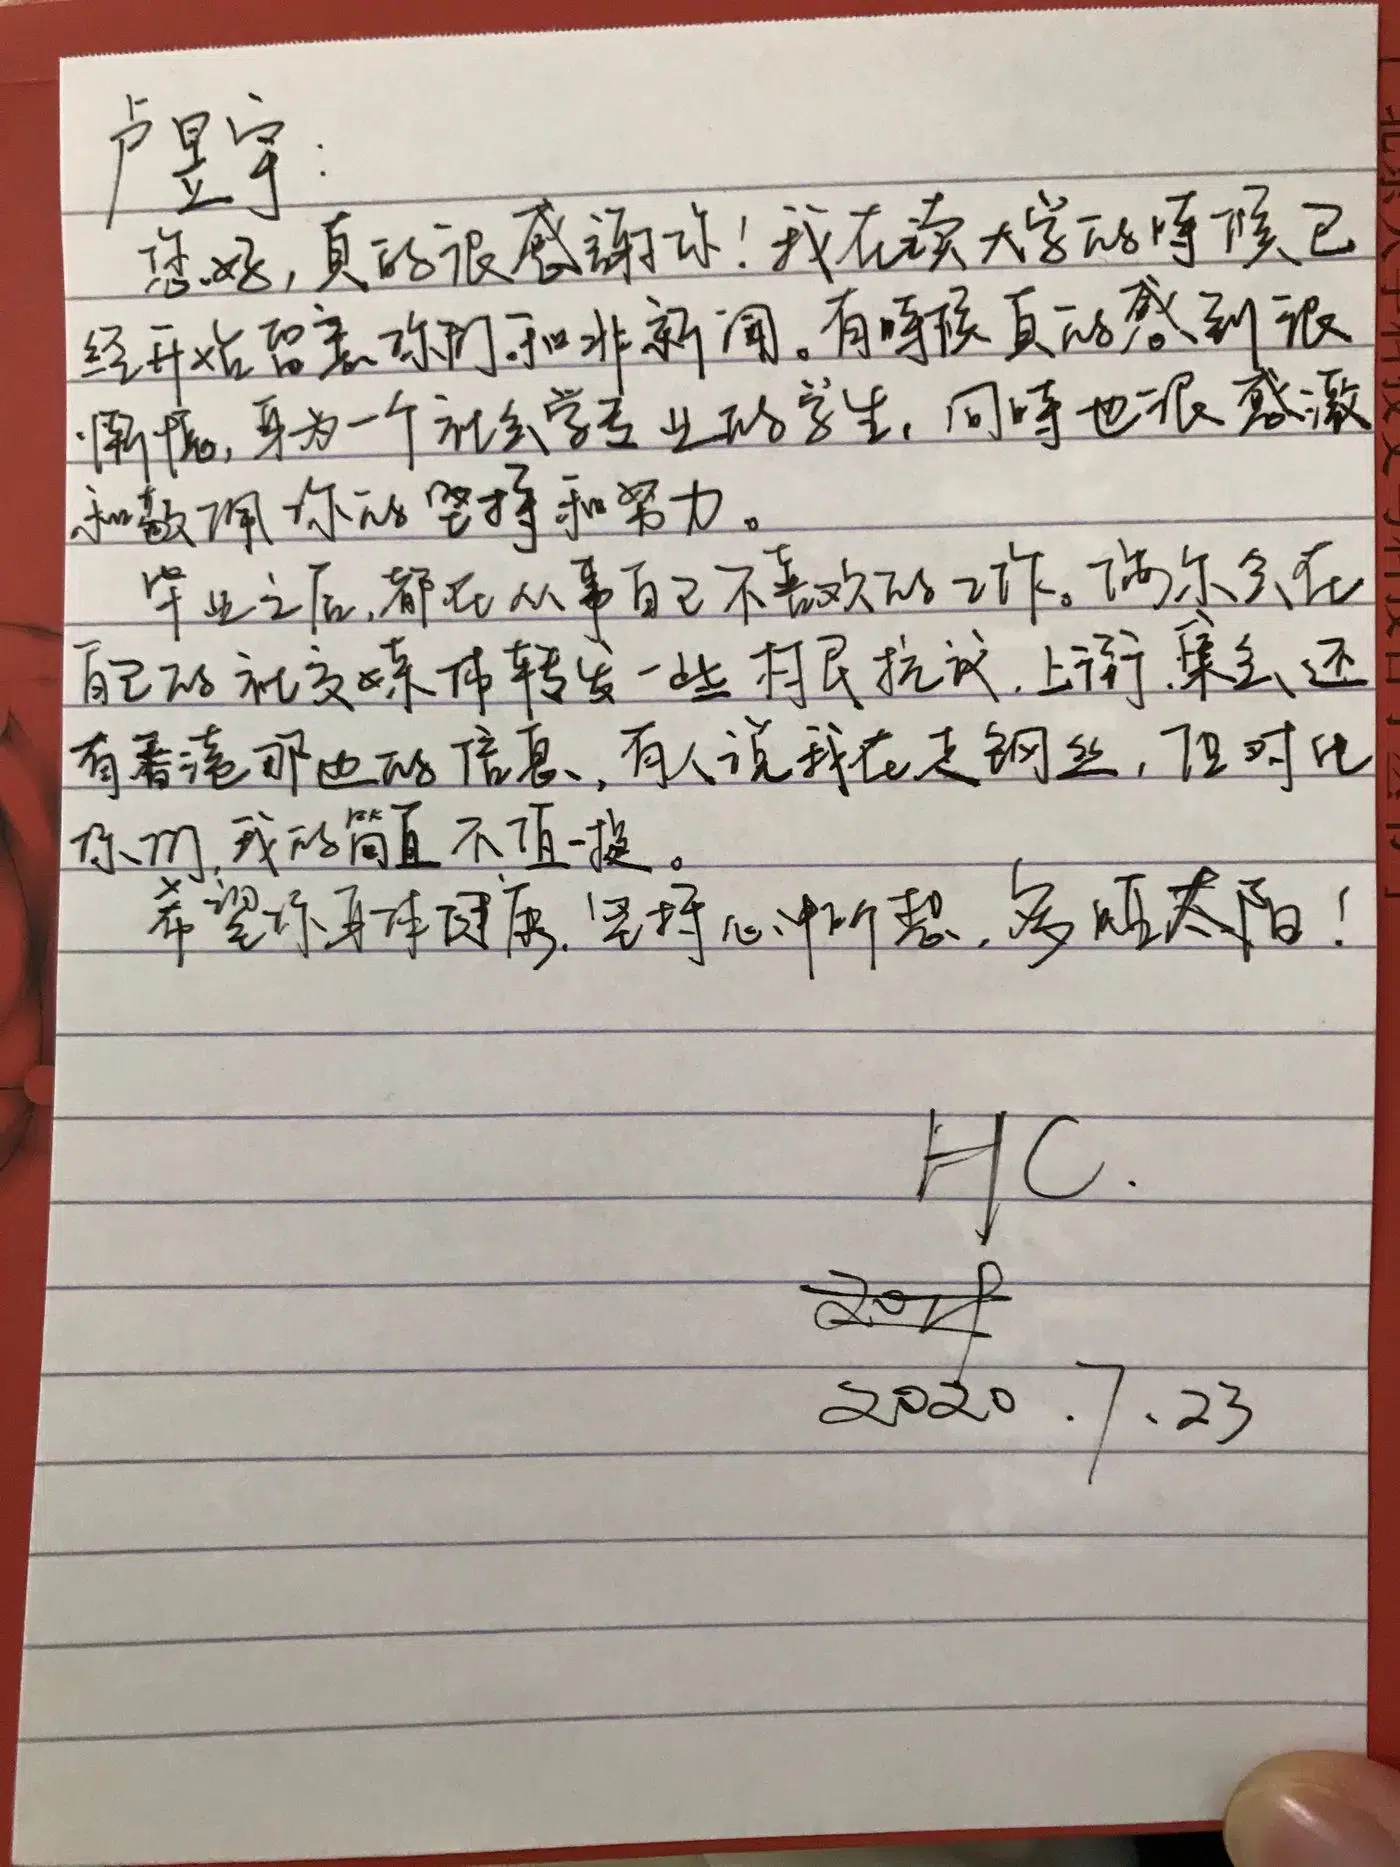 卢昱宇:
您好,真的很感謝你!我在读大学的時候已
经开始留意你们和非新闻。有時候真的感到很
惭愧,身为一个社会学专业的学生,同時也很感激
和敬佩你的坚持和努力。
毕业之后,都在从事自己不喜欢的工作。偶尔会在
自己的社交媒体转发一些村民抗议、上街、集会、还
有香港那边的信息,有人说我在走钢丝,但对比
你们,我的简直不值一提。
希望你身体健康,坚持心中所想,多晒太阳!
HC.
2020.7.23